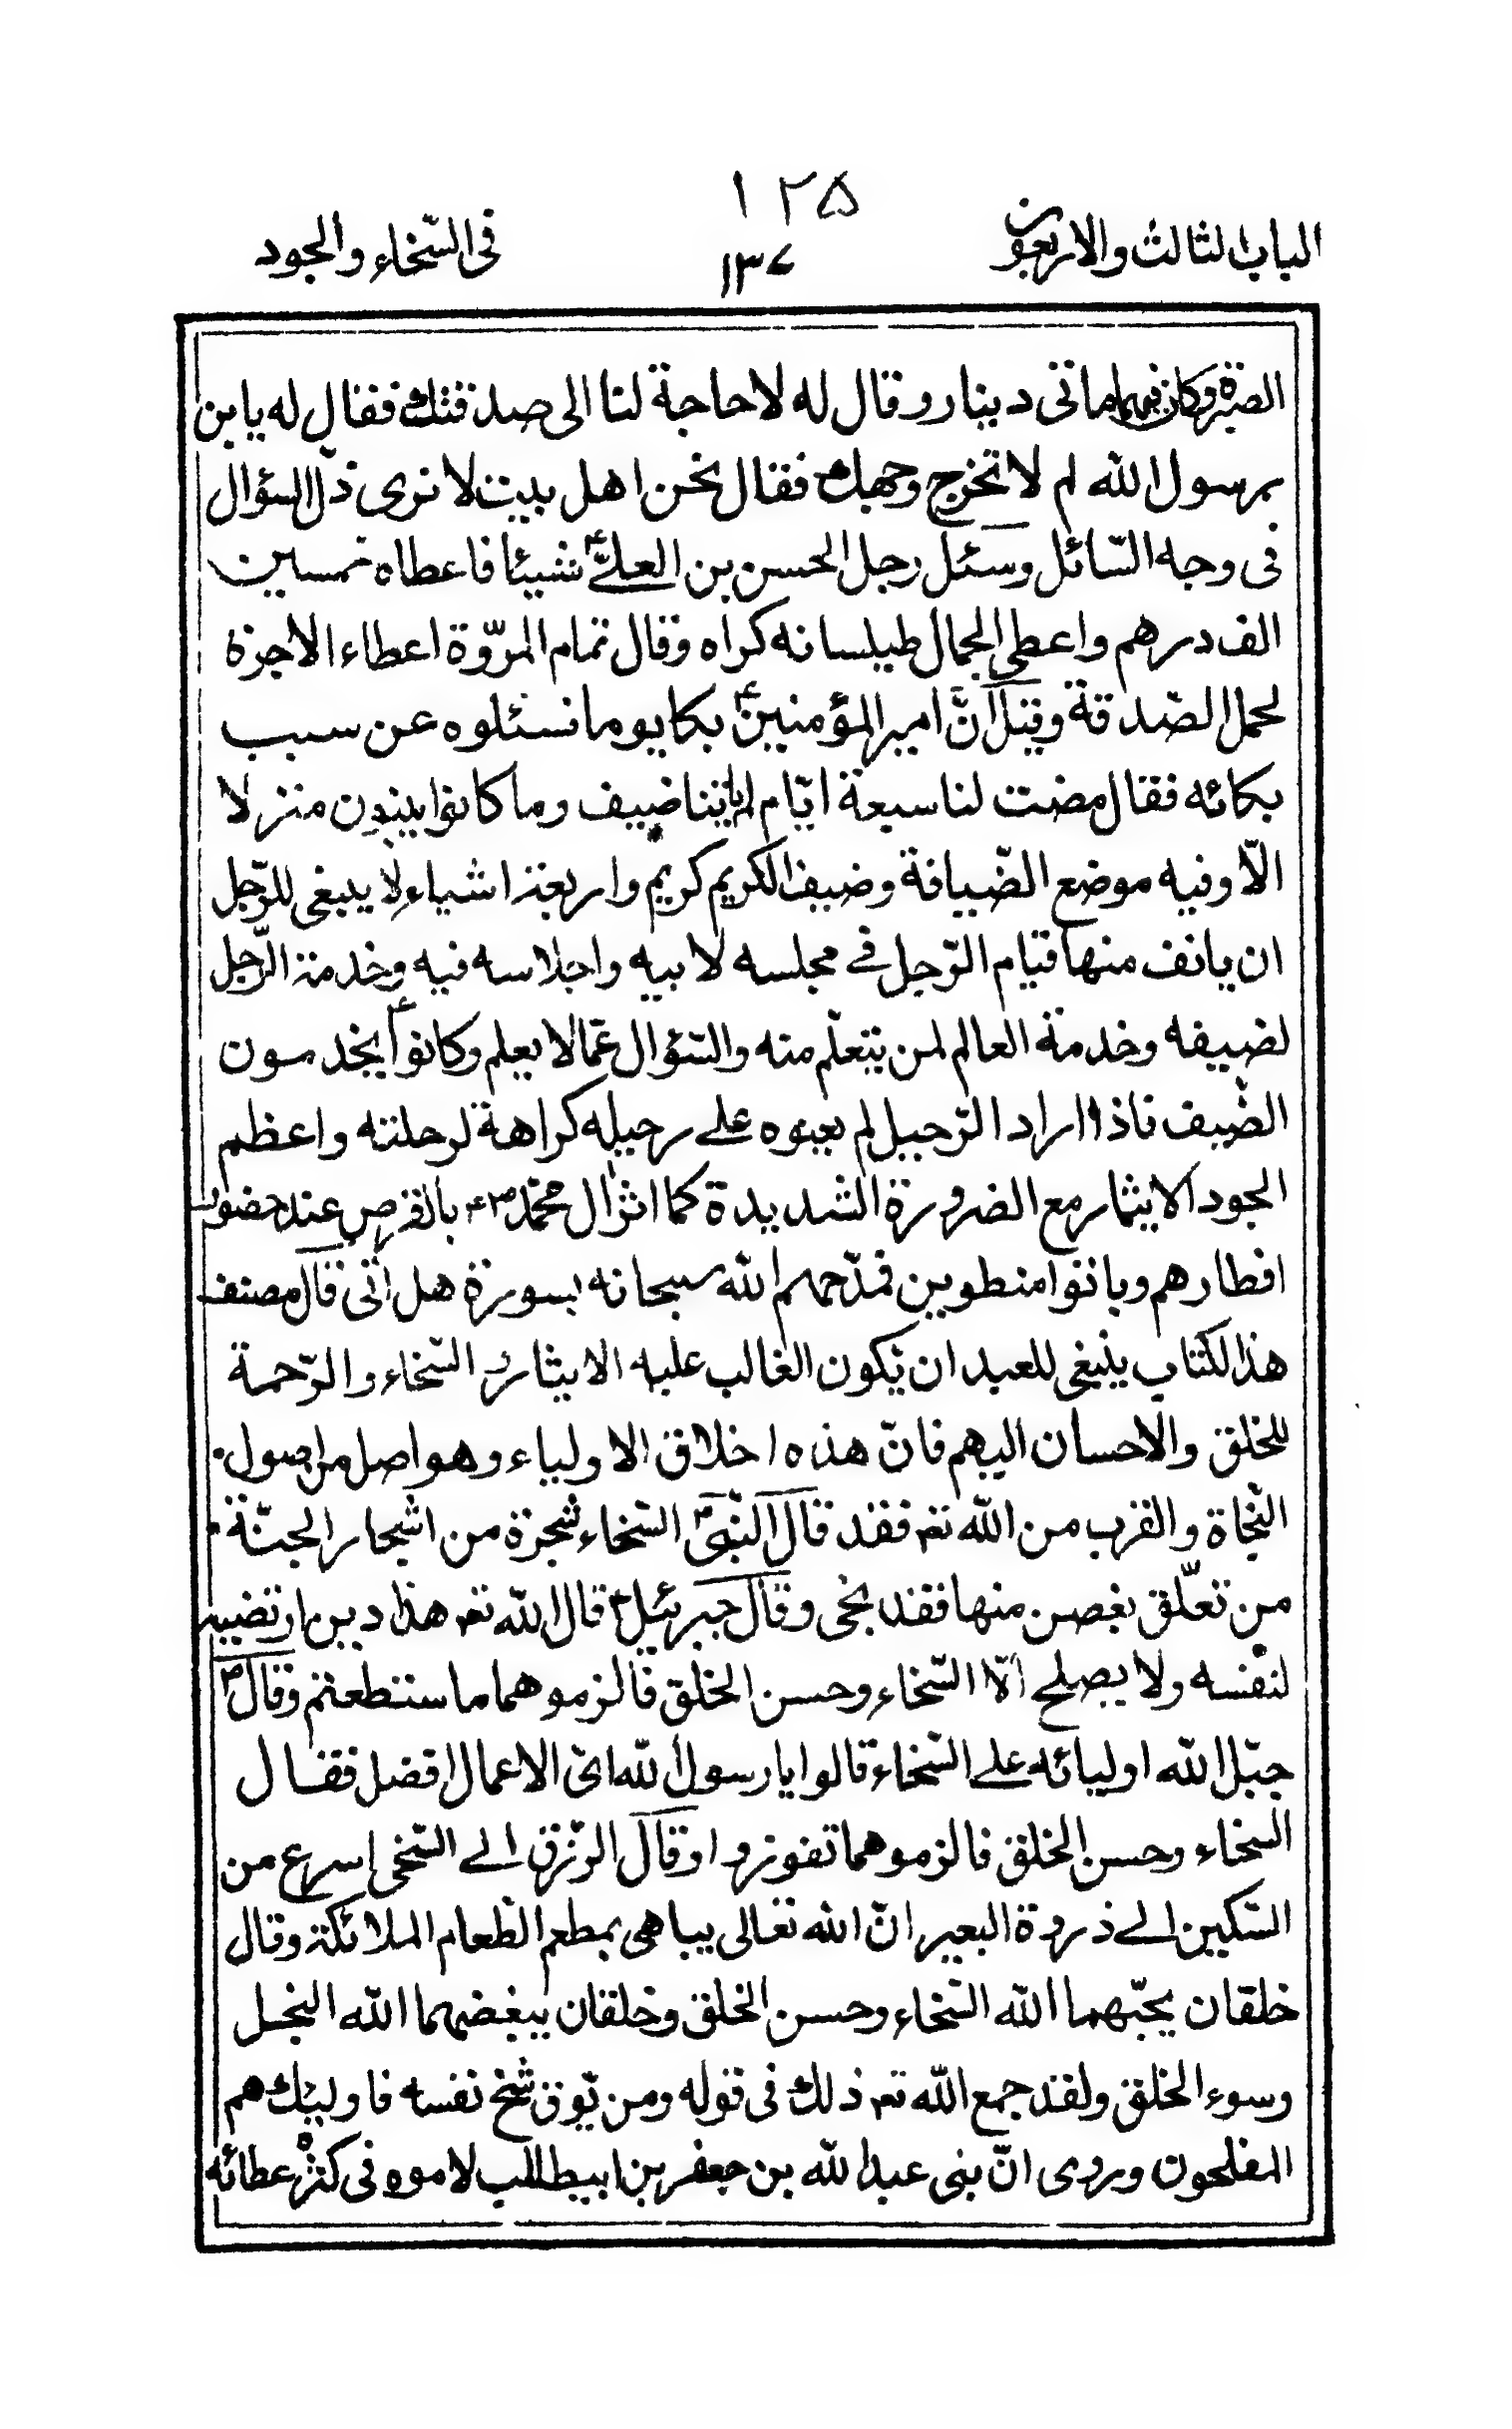 ١٢۵
الباب الثالث والاربعون ١٣٧ فى السّخاء والجود
الصرّة وكان فيها ماتى دينار وقال له لا حاجة لنا الى صدقتك فقال له يابن
رسول الله لم لا تخرج وجهك فقال نحن اهل بيت لا نرى ذلّ السؤال
فى وجه السّائل وسئل رجل الحسن بن العلىّ ع شيئا فاعطاه خمسين
الف درهم واعطى الجمال طيلسانه كراه وقال تمام المروّة اعطاء الاجرة
لحمل الصّدقة وقيل انّ امير المؤمنين ع بكا يوما فسئلوه عن سبب
بكائه فقال مضت لنا سبعة ايّام لم ياتينا ضيف وما كانوا يبنون منزلا
الّا وفيه موضع الضّيافة وضيف الكريم كريم واربعة اشياء لا ينبغى للرّجل
ان يانف منها قيام الرّجل فى مجلسه لابيه واجلاسه فيه وخدمة الرّجل
لضيفه وخدمة العالم لمن يتعلّم منه والسّؤال عمّا لا يعلم وكانوا ع يخدمون
الضّيف فاذا اراد الرّحيل لم يعينوه على رحيله كراهة لرحلته واعظم
الجود الايثار مع الضرورة الشديدة كما اثر ال محمّد ص ع بالقرص عند حضور
افطارهم وباتوا منطوين فمدّحهم الله سبحانه بسورة هل اتى قال مصنف
هذا الكتاب ينبغى للعبد ان يكون الغالب عليه الايثار و السّخاء والرّحمة
للخلق والاحسان اليهم فانّ هذه اخلاق الاولياء وهو اصل من اصول
النّجاة والقرب من الله تعه فقد قال النّبىّ ص السّخاء شجرة من اشجار الجنّة
من تعلّق بغصن منها فقد نجى وقال جبرئيل ع قال الله تعه هذا دين ارتضيه
لنفسه ولا يصلح الّا السّخاء وحسن الخلق فالزموهما ما ستطعتم وقال ص
جبّل الله اوليائه على السّخاء قالوا يا رسول الله اىّ الاعمال افضل فقال
السخاء وحسن الخلق فالزموهما تفوزوا وقال الرّزق الى السّخى اسرع من
السّكين الى ذروة البعير انّ الله تعالى يباهى بمطعم الطّعام الملائكة وقال
خلقان يحبّهما الله السّخاء وحسن الخلق وخلقان يبغضهما الله البخل
وسوء الخلق ولقد جمع الله تعه ذلك فى قوله ومن يوق شحّ نفسه فاولئك هم
المفلحون وروى انّ بنى عبد الله بن جعفر بن ابيطالب لاموه فى كثرة عطائه